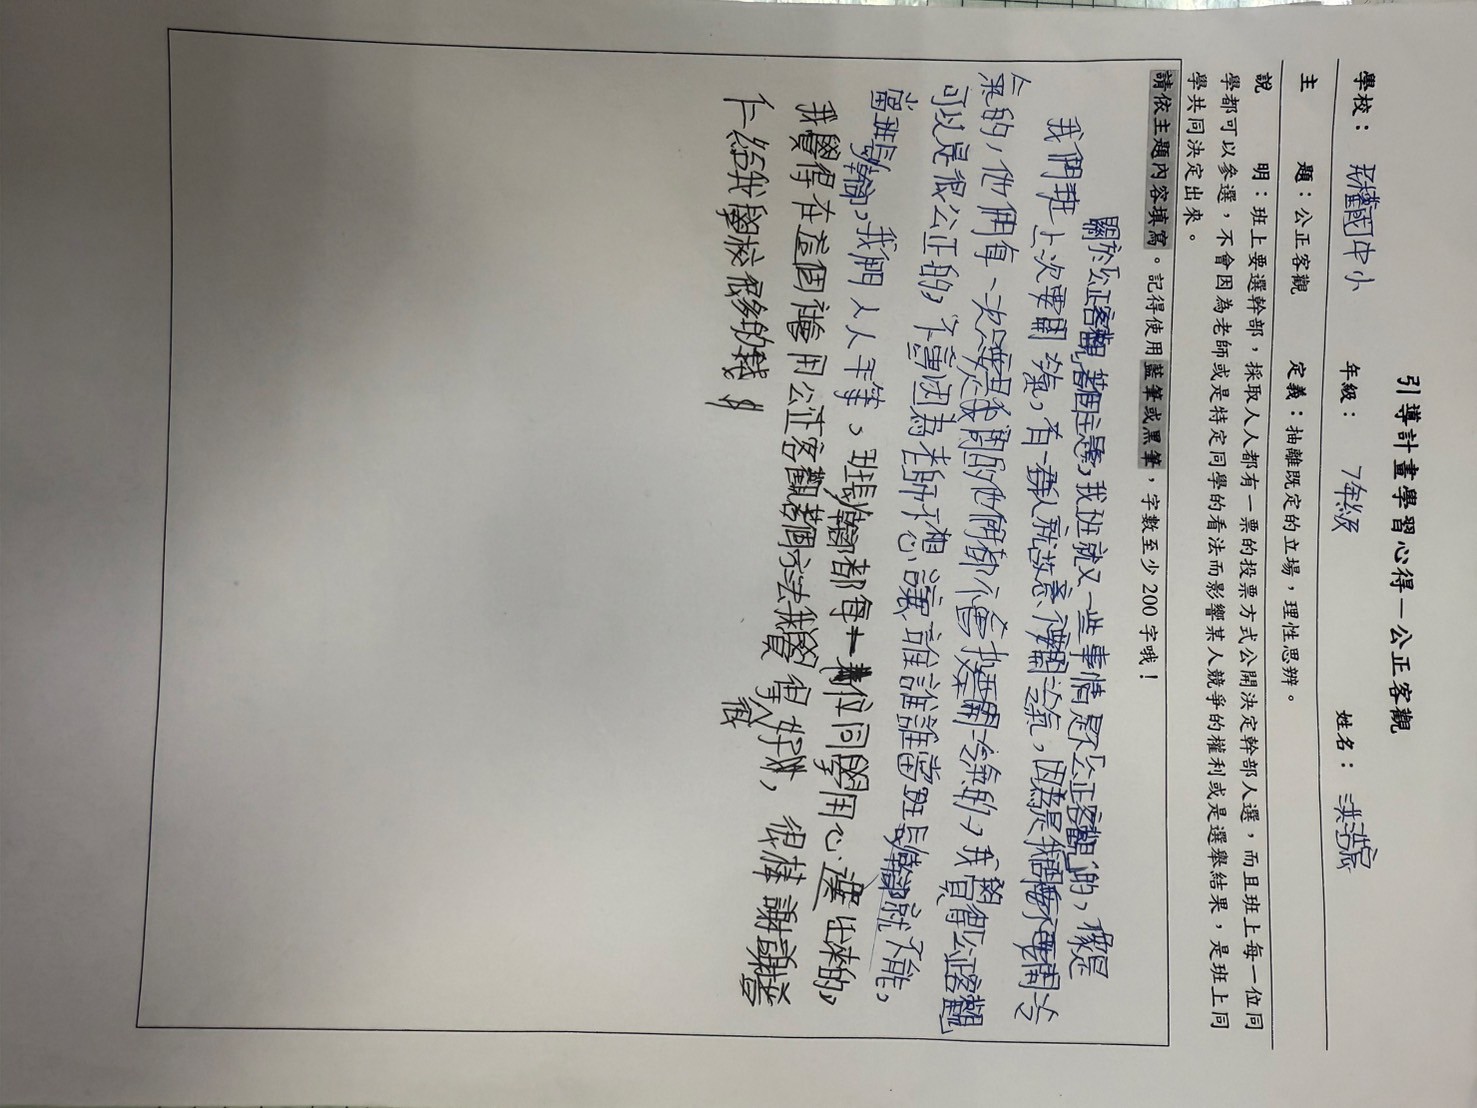 引導計畫學習心得—公正客觀
學校： 民權國中小 年級： 7年級 姓名： 洪
主 題：公正客觀 定義：抽離既定的立場，理性思辨。
說 明：班上要選幹部，採取人人都有一票的投票方式公開決定幹部人選，而且班上每一位同
學都可以參選，不會因為老師或是特定同學的看法而影響某人競爭的權利或是選舉結果，是班上同
學共同決定出來。
請依主題內容填寫。記得使用藍筆或黑筆，字數至少 200 字哦！
關於「公正客觀」著個主題，我班就又一些事情是不「公正客觀」的，像是
我們班上次要開冷氣，有一群人就故意不要開冷氣，因為是我們不要開冷
氣的，他們每一次只要是我開的他們都不會要開冷氣的，我覺得「公正客觀」
可以是很公正的，不會因為老師不想讓誰誰誰當班長幹部就不能，
當班長幹部，我們人人平等，班長幹部都每一位同學用心選出來的，
我覺得在這個社會用公正客觀著個方法我覺得很好，很棒謝謝
給我學校很多的錢